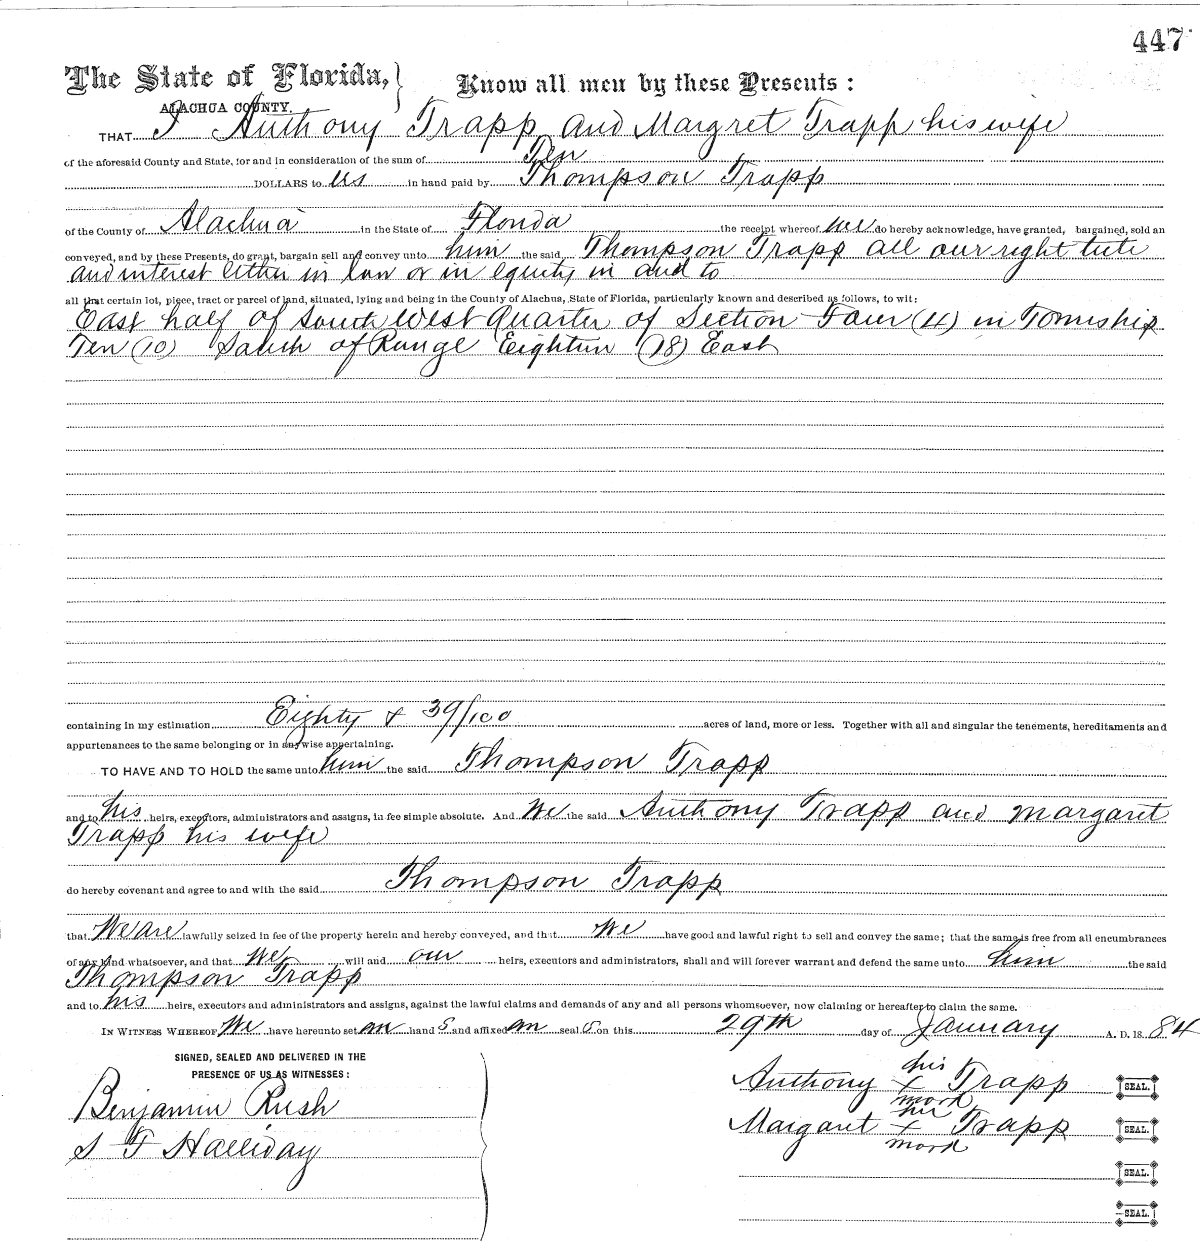 447
The State of Florida, } Know all men by these Presents :
ALACHUA COUNTY.
THAT I Anthony Trapp and Margret Trapp his wife
of the aforesaid County and State, for and in consideration of the sum of Ten
DOLLARS to us in hand paid by Thompson Trapp
of the County of Alachua in the State of Florida the receipt whereof we do hereby acknowledge, have granted, bargained, sold an
conveyed, and by these Presents, do grant, bargain sell and convey unto him the said Thompson Trapp all our right title
and interest either in law or in equity in and to
all that certain lot, piece, tract or parcel of land, situated, lying and being in the County of Alachua, State of Florida, particularly known and described as follows, to wit:
East half of South West Quarter of Section Four (4) in Township
Ten (10) South of Range Eighteen (18) East
containing in my estimation Eighty & 39/100 acres of land, more or less. Together with all and singular the tenements, hereditaments and
appurtenances to the same belonging or in anywise appertaining.
TO HAVE AND TO HOLD the same unto him the said Thompson Trapp
and to his heirs, executors, administrators and assigns, in fee simple absolute. And We the said Anthony Trapp and Margaret
Trapp his wife
do hereby covenant and agree to and with the said Thompson Trapp
that We are lawfully seized in fee of the property herein and hereby conveyed, and that we have good and lawful right to sell and convey the same; that the same is free from all encumbrances
of any kind whatsoever, and that We will and our heirs, executors and administrators, shall and will forever warrant and defend the same unto him the said
Thompson Trapp
and to his heirs, executors and administrators and assigns, against the lawful claims and demands of any and all persons whomsoever, now claiming or hereafter to claim the same.
IN WITNESS WHEREOF We have hereunto set our hand s and affixed our seal s on this 29th day of January A. D. 18 84
SIGNED, SEALED AND DELIVERED IN THE
PRESENCE OF US AS WITNESSES:
Benjamin Rush
S F Halliday
his
Anthony x Trapp SEAL.
mark
her
Margaret x Trapp SEAL.
mark
SEAL.
SEAL.